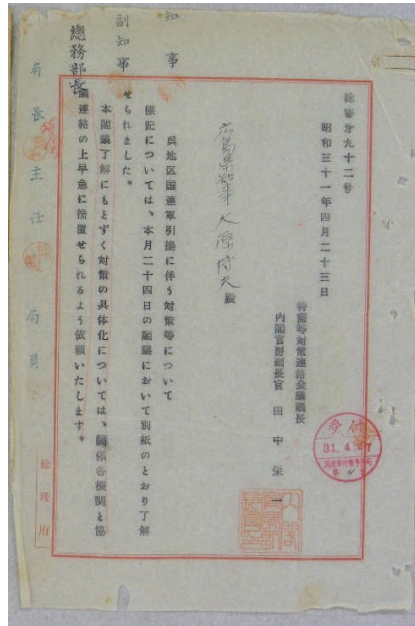 総審才九十二号
昭和三十一年四月二十三日
特需等対策連絡会議議長
内閣官房副長官 田中栄一
広島県知事 大原博夫 殿
呉地区国連軍引揚に伴う対策等について
標記については、本月二十四日の閣議において別紙のとおり了解
せられました。
本閣議了解にもとずく対策の具体化については、関係各機関と協
議連絡の上早急に措置せられるよう依頼いたします。
知事
副知事
總務部長
局長
主任
局員
受付
31.4.27
総理府